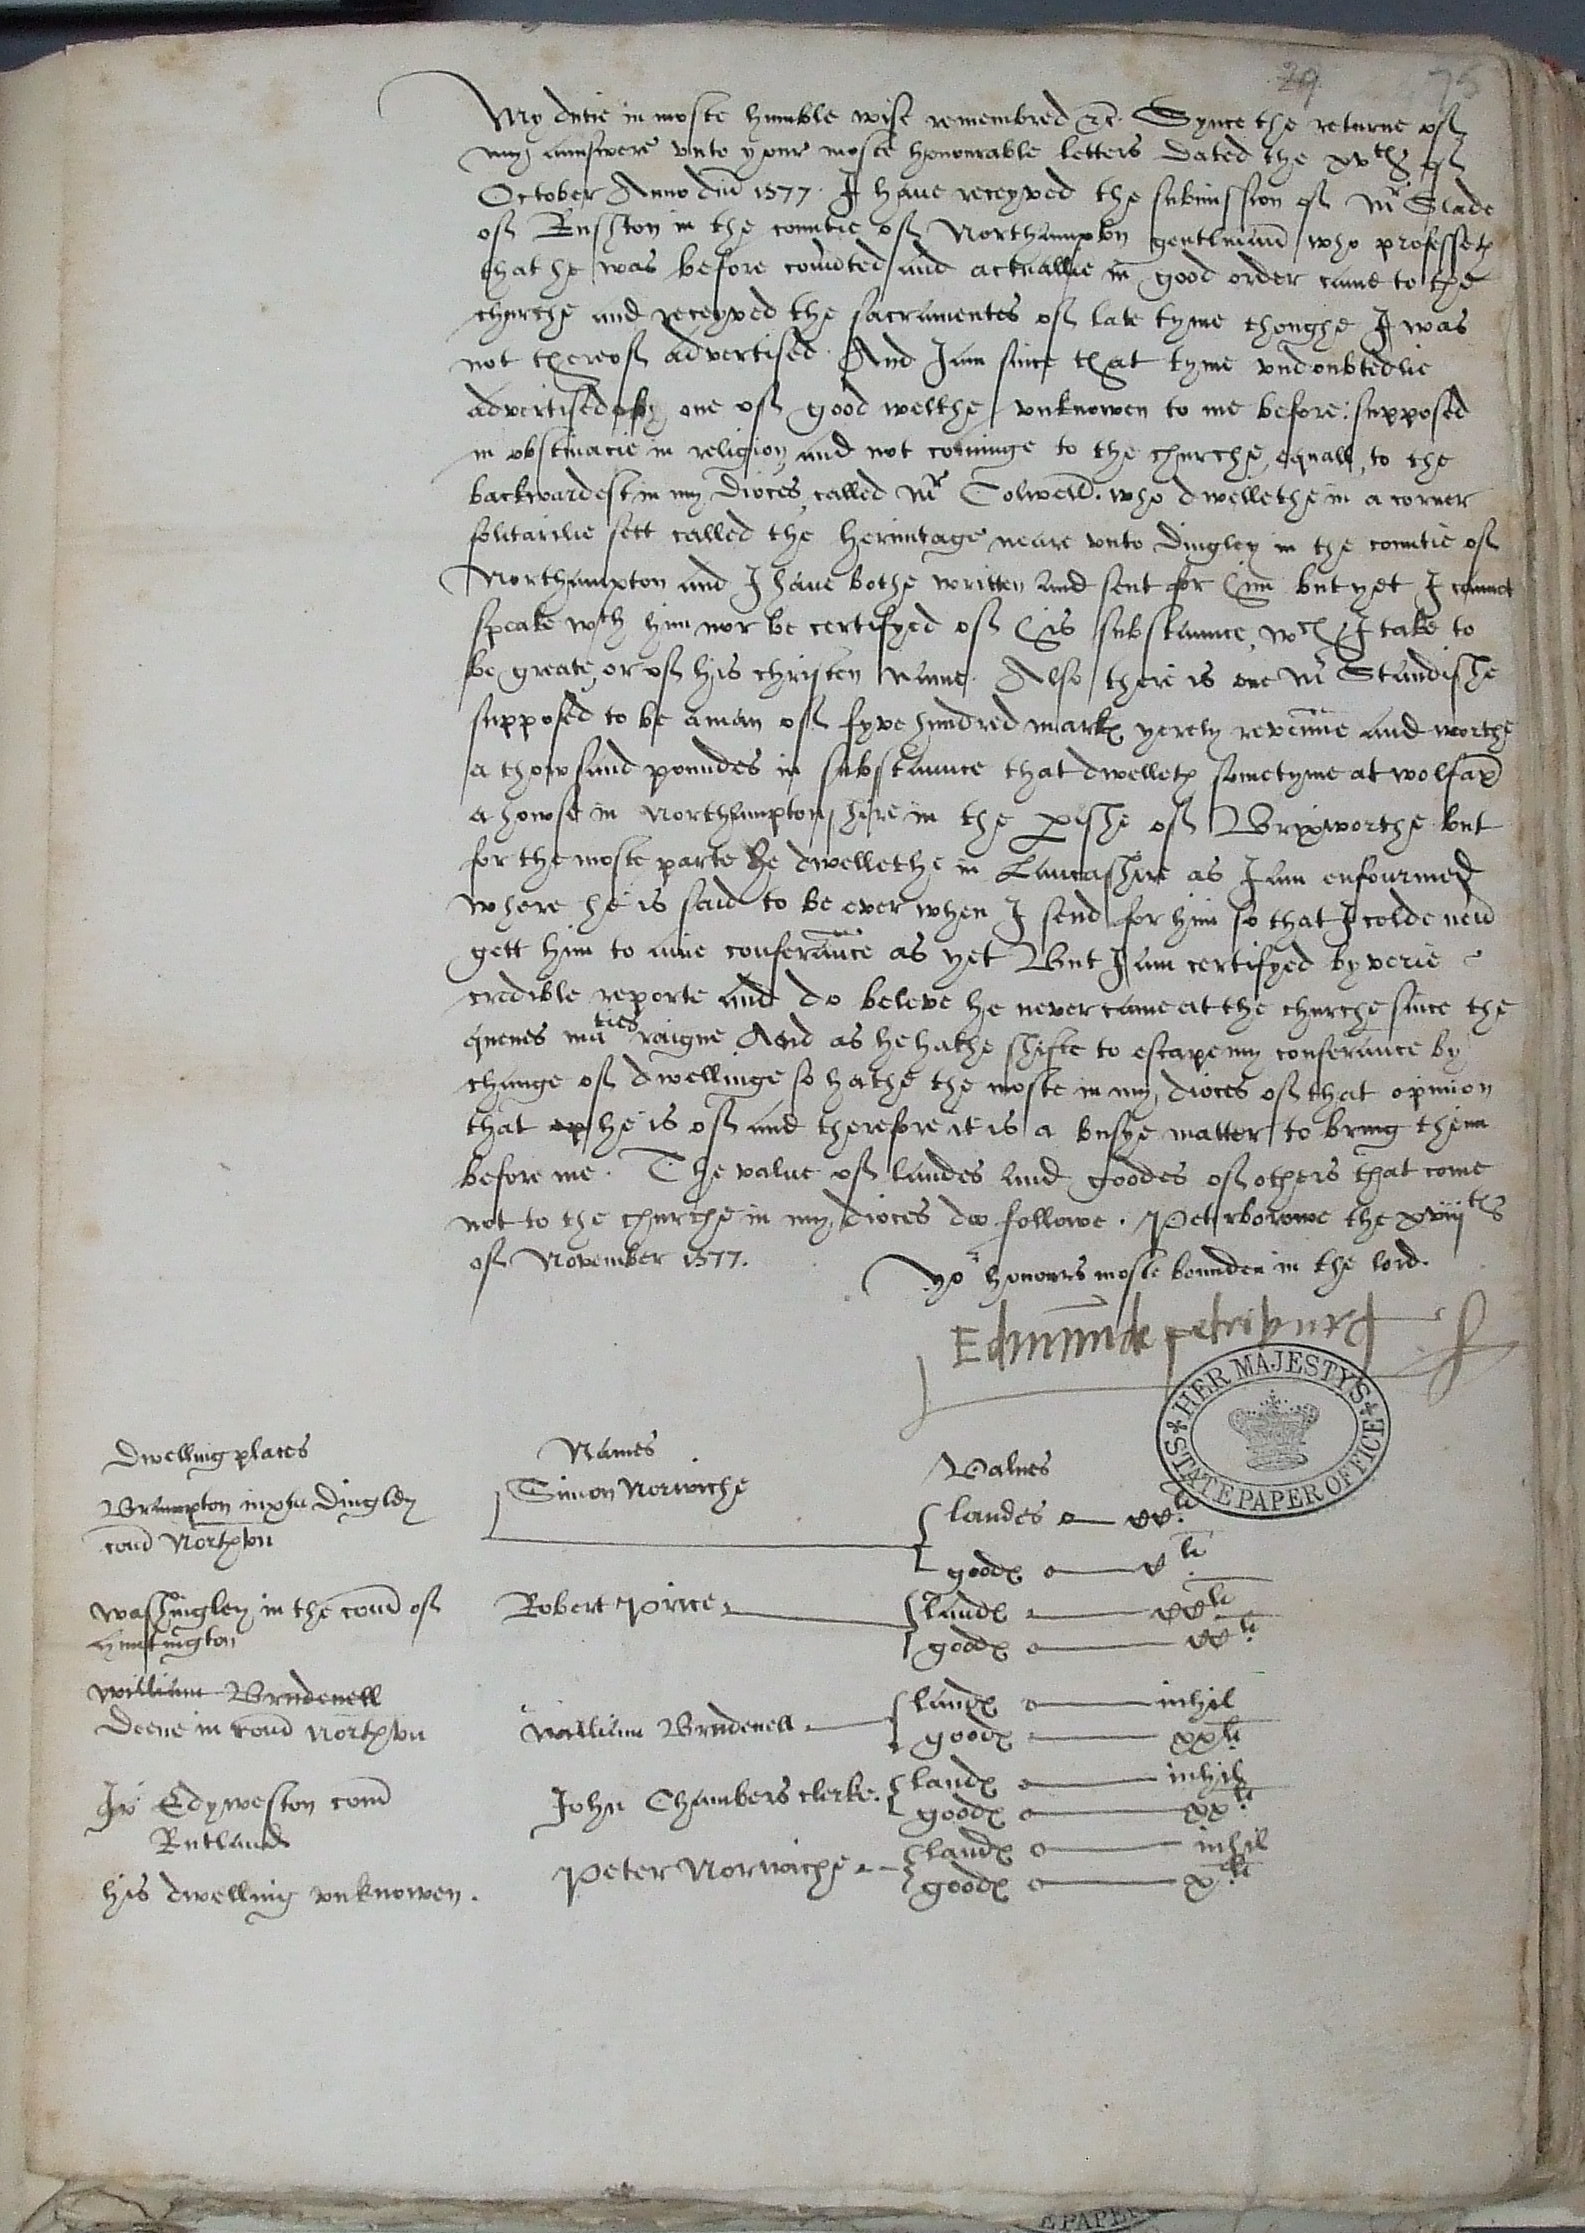 29 75
My dutie in moste humble wise remembred &c. Synce the returne of
my aunswere vnto your moste honourable letters dated the xvth of
October Anno dni 1577. I haue receyved the submission of Mr Slade
of Rushton in the countie of Northampton gentlman who professeth
that he was before and actuallie in good order came to the
churche and receyved the sacramentes of late tyme thoughe I was
not thereof advertised. And I am since that tyme vndoubtedlie
advertised of one of good welthe vnknowen to me before: supposed
in obstinacie in religion and not cominge to the churche, equall, to the
backwardest in my dioces, called Mr who dwellethe in a corner
solitarilie sett called the hermitage neare vnto Dingley in the countie of
Northampton and I haue bothe written and sent for him but yet I cannot
speake wth him nor be certifyed of his substaunce, wch I take to
be greate, or of his christen name. Also there is one Mr Standishe
supposed to be a man of fyve hundred markes yerely revenue and worthe
a thowsand poundes in substaunce that dwelleth sometyme at
a howse in Northamptonshire in the pishe of Brixworthe but
for the moste parte he dwellethe in Lancashire as I am enfourmed
where he is said to be ever when I send for him so that I colde neu
gett him to anie conferaunce as yet But I am certifyed by verie
credible reporte and do beleve he never came at the churche since the
quenes maties raigne And as he hathe shifte to escape my conferance by
change of dwellinge so hathe the moste in my dioces of that opinion
that he is of and therefore it is a busye matter to bring them
before me. The value of landes and goodes of others that come
not to the churche in my dioces doo followe. Peterborowe the xviijth
of November 1577.
Yor honours moste bounden in the lord.
Edmunde petriburg
HER MAJESTYS STATE PAPER OFFICE
Dwelling places Names Values
Brampton iuxta Dingley Simon Norwiche landes xx li
com Northton goodes v li
Washingley in the com of Robert Price landes xx li
Huntington goodes xx li
William Brudenell
Deene in com Northton William Brudenell landes nihil
goodes xx li
In Edyweston com John Chambers clerke landes nihil
Rutland goodes xx li
his dwelling vnknowen. Peter Norwiche landes nihil
goodes x li
E PAPER